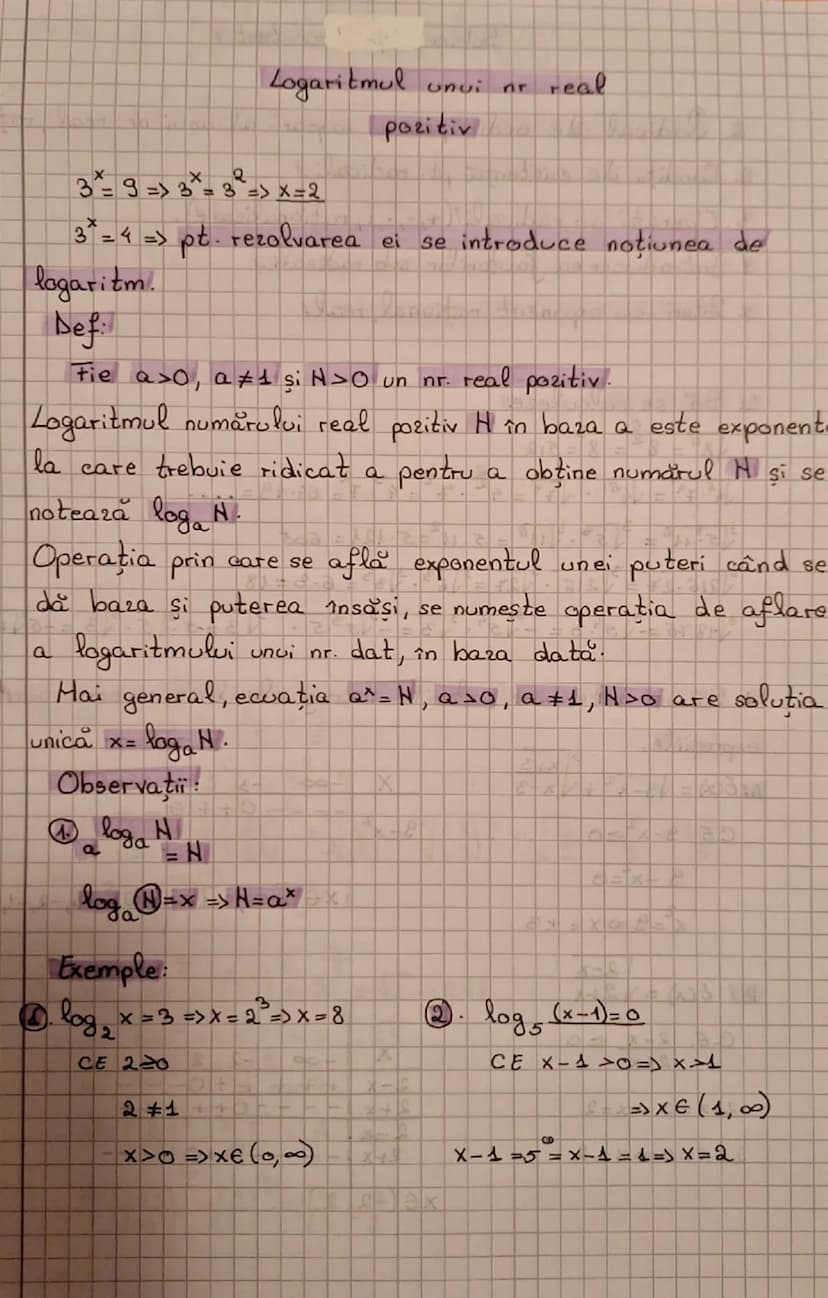 Logaritmul unui nr real
pozitiv
3ˣ = 9 => 3ˣ = 3² => x = 2
3ˣ = 4 => pt. rezolvarea ei se introduce noțiunea de
logaritm.
Def:
Fie a>0, a≠1 și N>0 un nr. real pozitiv.
Logaritmul numărului real pozitiv N în baza a este exponent
la care trebuie ridicat a pentru a obține numărul N și se
notează logₐ N.
Operația prin care se află exponentul unei puteri când se
dă baza și puterea însăși, se numește operația de aflare
a logaritmului unui nr. dat, în baza dată.
Mai general, ecuația aˣ = N, a>0, a≠1, N>0 are soluția
unică x = logₐ N.
Observații:
① a^(logₐ N) = N
logₐ N = x => N = aˣ
Exemple:
①. log₂ x = 3 => x = 2³ => x = 8
CE 2>0
2≠1
x>0 => x∈(0,∞)
②. log₅ (x-1) = 0
CE x-1 >0 => x>1
=> x∈(1,∞)
x-1 = 5⁰ = x-1 = 1 => x = 2